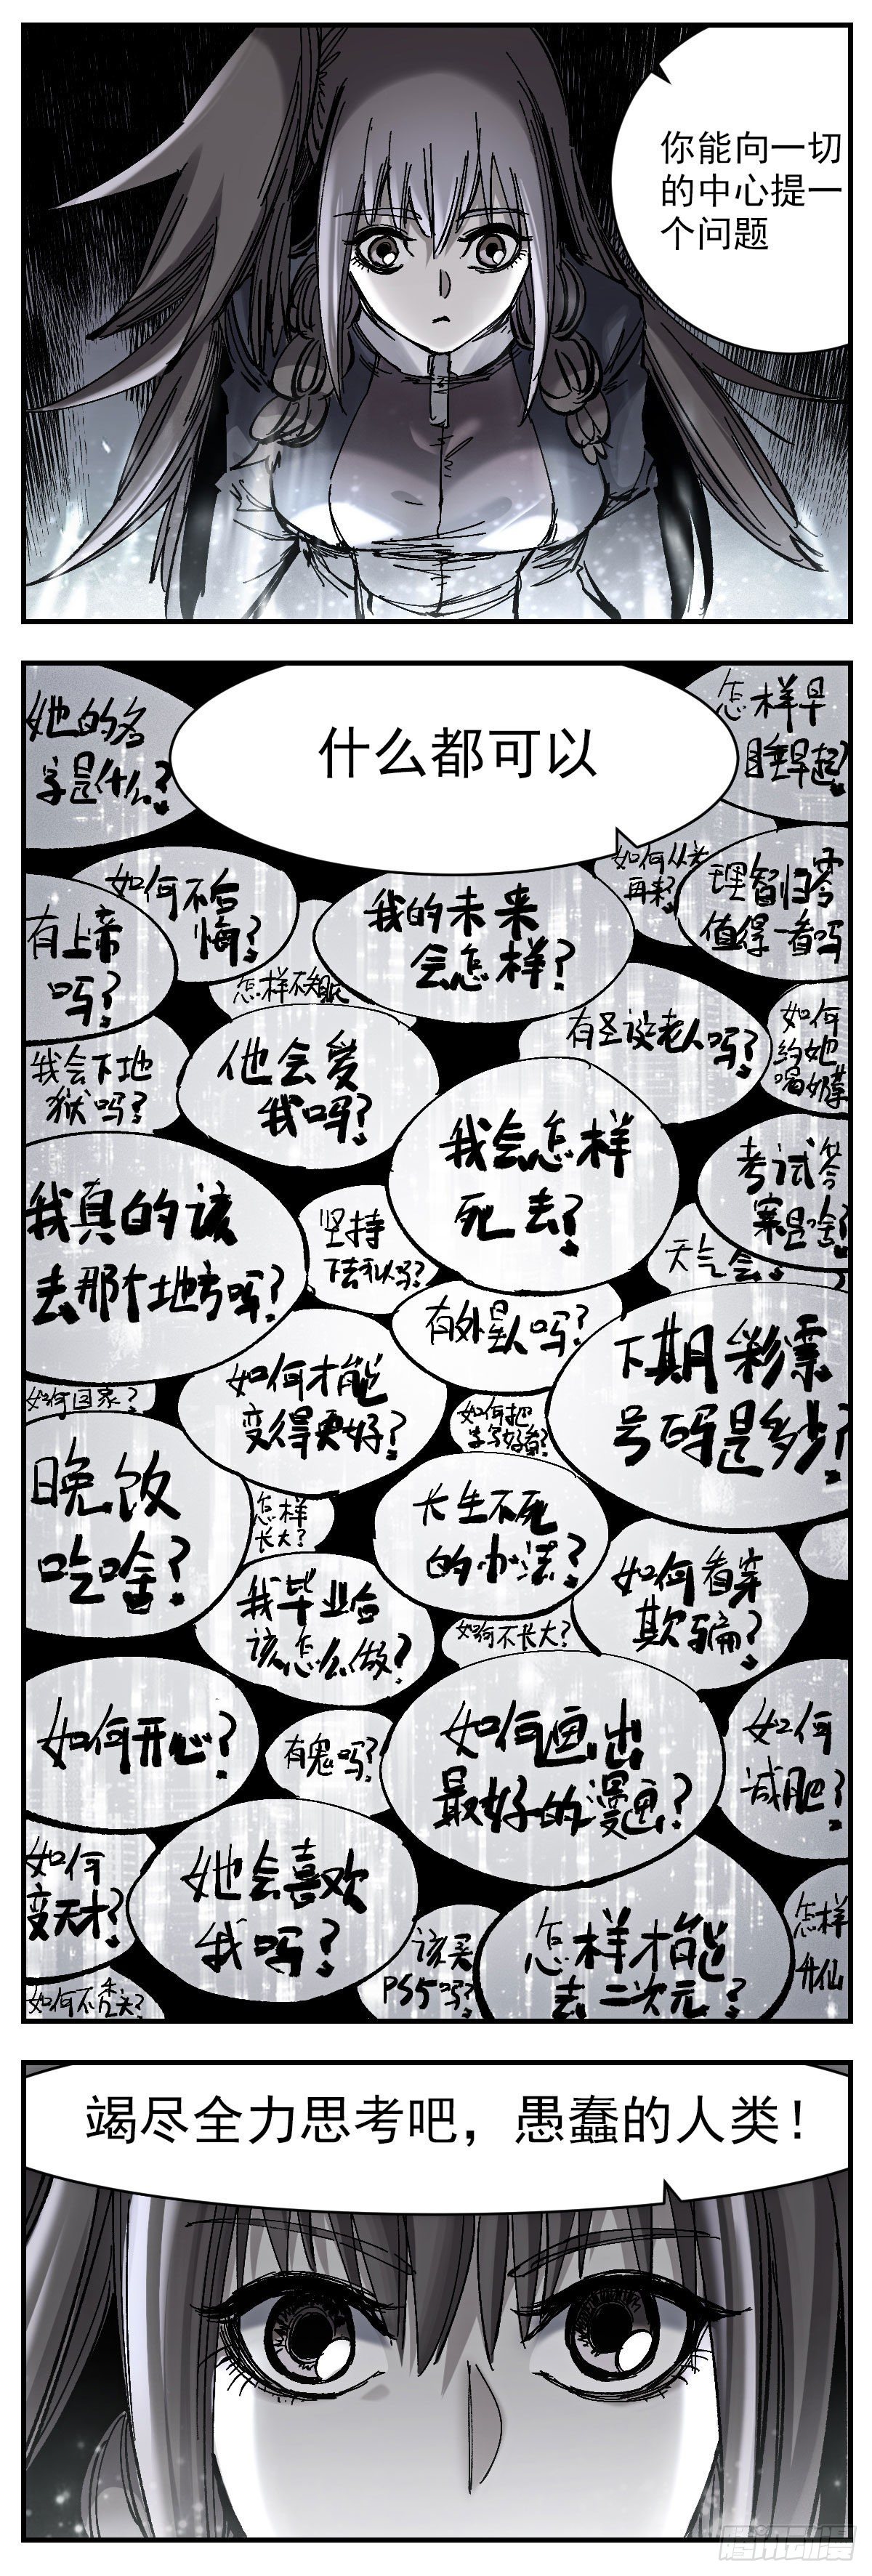 你能向一切
的中心提一
个问题
什么都可以
她的名
字是什么?
怎样早
睡早起?
如何不后
悔?
我的未来
会怎样?
如何从头
再来?
理智归零
值得一看吗
有上帝
吗?
怎样不知眠
有圣诞老人吗?
如何
约她
喝奶茶
我会下地
狱吗?
他会爱
我吗?
我会怎样
死去?
考试答
案是啥?
我真的该
去那个地方吗?
坚持
下去和人吗?
天气会
有外星人吗?
下期彩票
号码是多少?
如何回家?
如何才能
变得更好?
如何把
字写好看?
晚饭
吃啥?
怎样
长大?
长生不死
的办法?
如何看穿
欺骗?
我毕业后
该怎么做?
如何不长大?
如何开心?
有鬼吗?
如何画出
最好的漫画?
如何
减肥?
如何
变天才?
她会喜欢
我吗?
该买
PS5吗?
怎样才能
去二次元?
怎样
升仙
如何不秃头?
竭尽全力思考吧，愚蠢的人类！
腾讯动漫